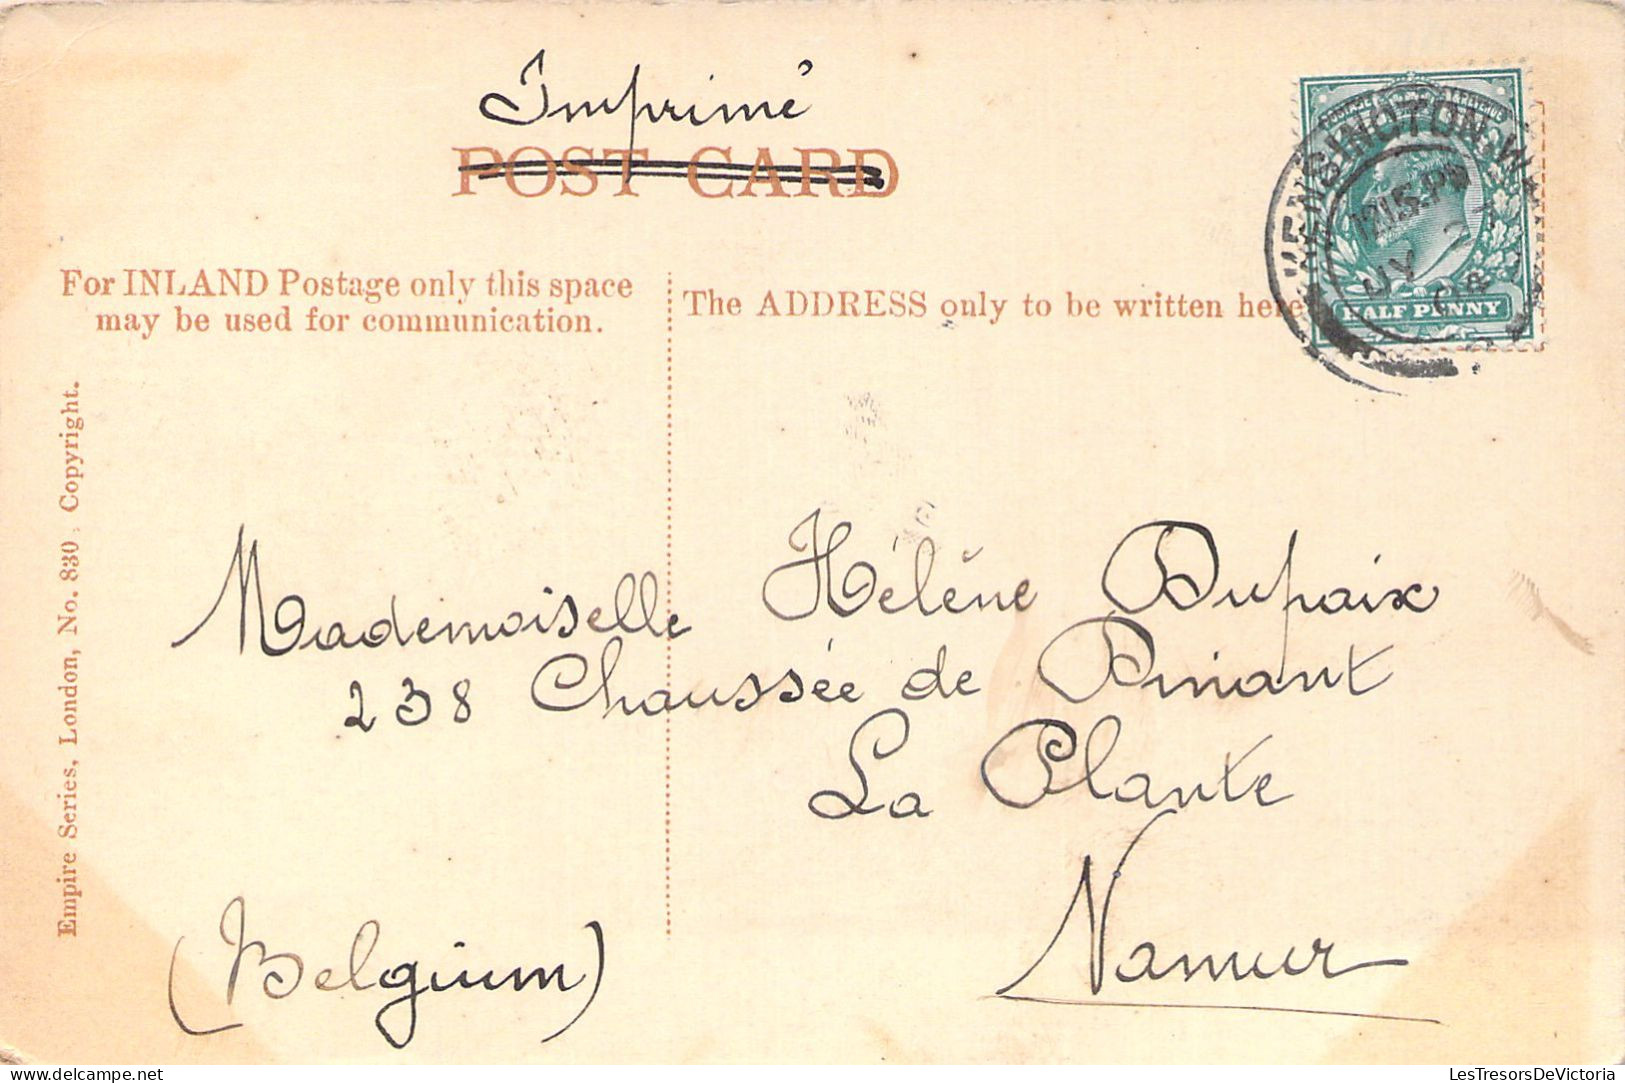 Imprimé
POST CARD
For INLAND Postage only this space
may be used for communication.
The ADDRESS only to be written here
KENSINGTON. W.
12.15.PM
JY 2
04
HALF PENNY
Empire Series, London, No. 830. Copyright.
Mademoiselle Hélène Dupaix
238 Chaussée de Dinant
La Plante
Namur
(Belgium)
LesTresorsDeVictoria